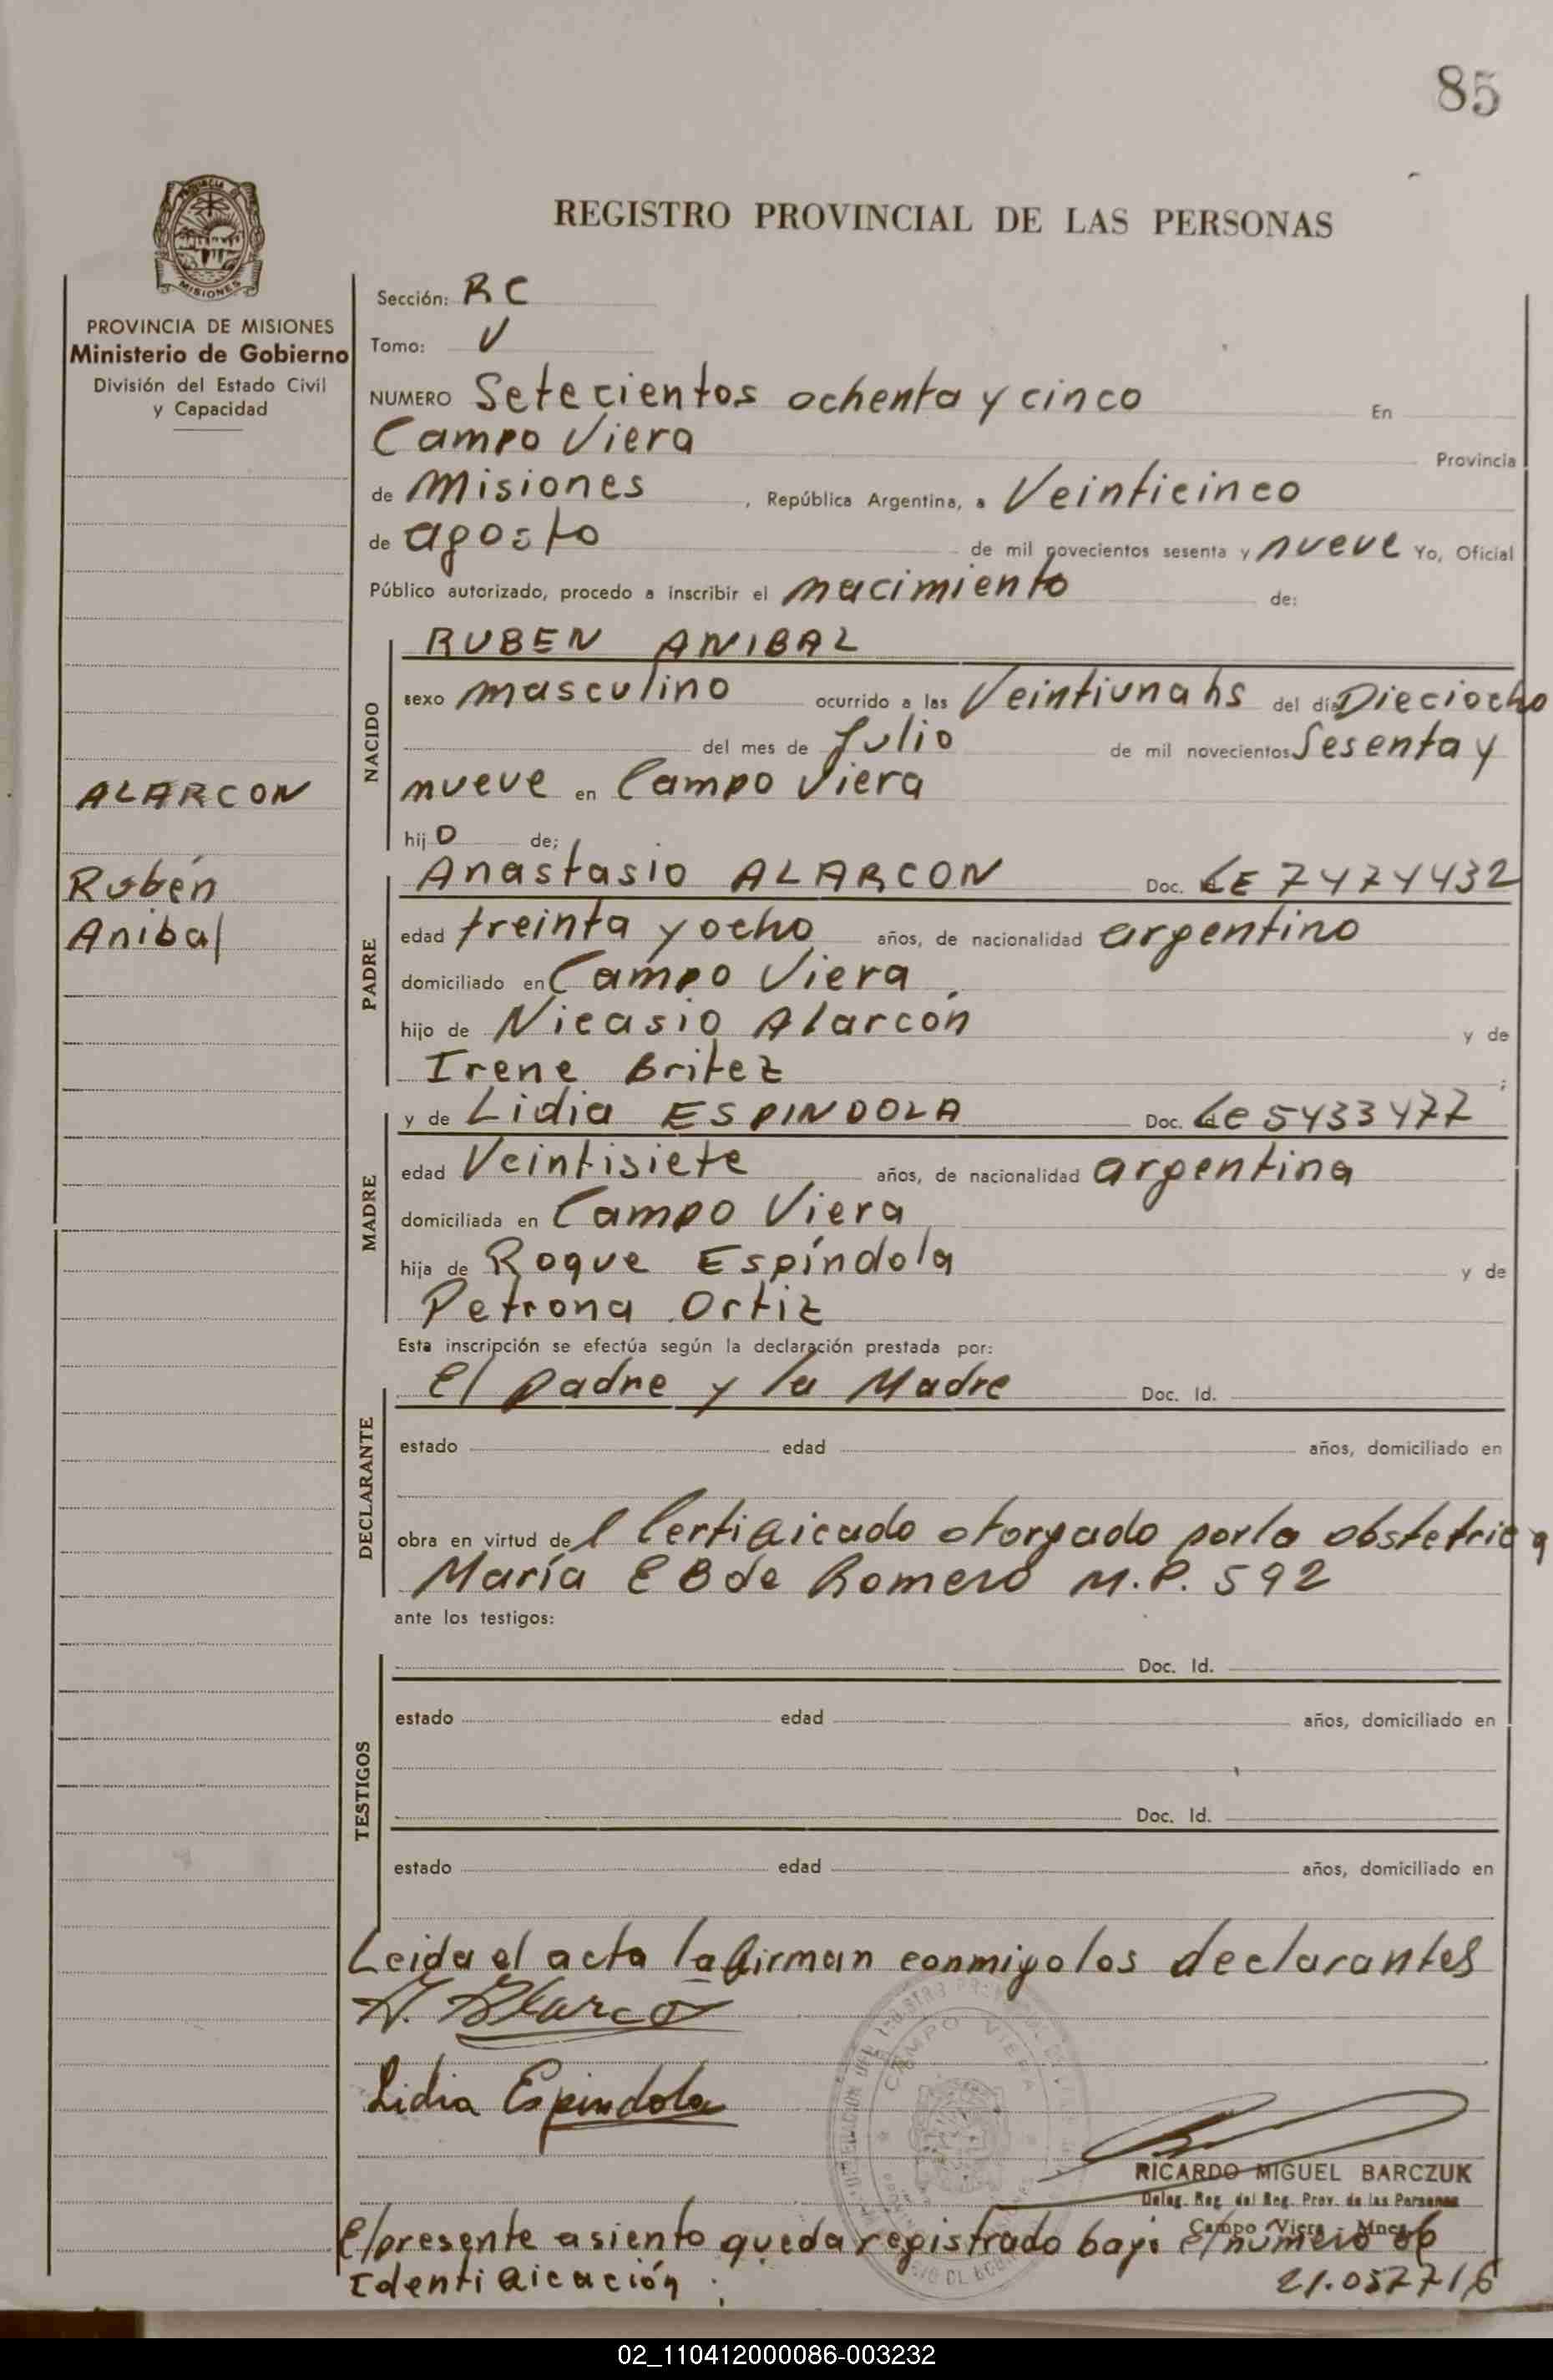 85
PROVINCIA DE MISIONES
MISIONES
PROVINCIA DE MISIONES
Ministerio de Gobierno
División del Estado Civil
y Capacidad
ALARCON
Rubén
Anibal
REGISTRO PROVINCIAL DE LAS PERSONAS
Sección: RC
Tomo: V
NUMERO Setecientos ochenta y cinco En
Campo Viera Provincia
de Misiones, República Argentina, a Veinticinco
de agosto de mil novecientos sesenta y nueve Yo, Oficial
Público autorizado, procedo a inscribir el nacimiento de:
NACIDO
RUBEN ANIBAL
sexo masculino ocurrido a las Veintiuna hs del día Dieciocho
del mes de Julio de mil novecientos Sesenta y
nueve en Campo Viera
hijo de;
PADRE
Anastasio ALARCON Doc. LE 7474432
edad treinta y ocho años, de nacionalidad argentino
domiciliado en Campo Viera
hijo de Nicasio Alarcón y de
Irene Britez ;
MADRE
y de Lidia ESPINDOLA Doc. Lc 5433477
edad Veintisiete años, de nacionalidad argentina
domiciliada en Campo Viera
hija de Roque Espíndola y de
Petrona Ortiz
Esta inscripción se efectúa según la declaración prestada por:
DECLARANTE
el padre y la Madre Doc. Id.
estado edad años, domiciliado en
obra en virtud del Certificado otorgado por la obstetrica
María E B de Romero M.P. 592
ante los testigos:
TESTIGOS
Doc. Id.
estado edad años, domiciliado en
Doc. Id.
estado edad años, domiciliado en
Leida el acta la firman conmigo los declarantes
A. Alarco
Lidia Espindola
CAMPO VIERA
RICARDO MIGUEL BARCZUK
Deleg. Reg. del Reg. Prov. de las Personas
Campo Viera - Mnes.
El presente asiento queda registrado bajo el número de
Identificación: 21.057716
02_110412000086-003232